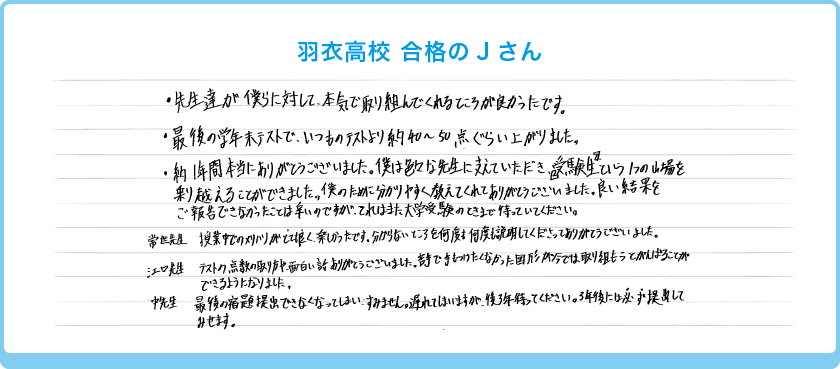 羽衣高校 合格のJさん
・先生達が僕らに対して、本気で取り組んでくれるところが良かったです。
・最後の学年末テストで、いつものテストより約40〜50点ぐらい上がりました。
・約1年間本当にありがとうございました。僕は色々な先生に支えていただき、受験生という1つの山場を
乗り越えることができました。僕のために分かりやすく教えてくれてありがとうございました。良い結果を
ご報告できなかったことは辛いのですが、それはまた大学受験のときまで待っていてください。
常世先生 授業中でのメリハリがとても良く、楽しかったです。分からないところを何度も何度も説明してくださってありがとうございました。
江口先生 テストの点数の取り方や面白い話ありがとうございました。苦手でさわりたくなかった図形が今では取り組もうとがんばることが
できるようになりました。
中先生 最後の宿題提出できなくなってしまい、すみません。遅れてしまいますが、後3年待ってください。3年後には必ず提出して
みせます。